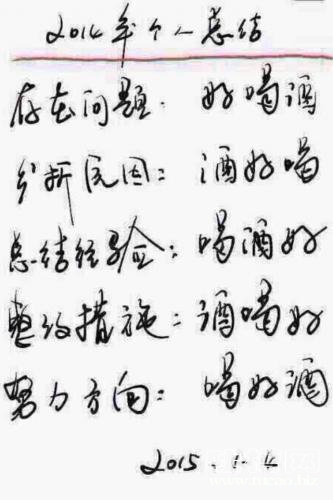 2014年个人总结
存在问题: 好喝酒
分析原因: 酒好喝
总结经验: 喝酒好
整改措施: 酒喝好
努力方向: 喝好酒
2015.1.4